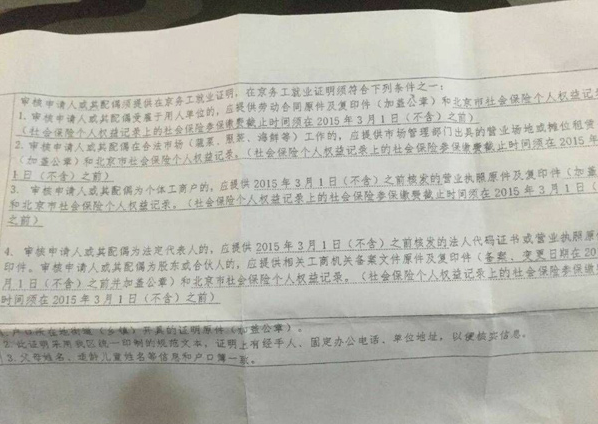 审核申请人或其配偶须提供在京务工就业证明，在京务工就业证明须符合下列条件之一：
1. 审核申请人或其配偶受雇于用人单位的，应提供劳动合同原件及复印件（加盖公章）和北京市社会保险个人权益记录
（社会保险个人权益记录上的社会保险参保缴费截止时间须在 2015 年 3 月 1 日（不含）之前）
2. 审核申请人或其配偶在合法市场（蔬菜、服装、海鲜等）工作的，应提供市场管理部门出具的营业场地或摊位租赁
（加盖公章）和北京市社会保险个人权益记录。（社会保险个人权益记录上的社会保险参保缴费截止时间须在 2015 年
1 日（不含）之前）
3. 审核申请人或其配偶为个体工商户的，应提供 2015 年 3 月 1 日（不含）之前核发的营业执照原件及复印件（加盖
和北京市社会保险个人权益记录。（社会保险个人权益记录上的社会保险参保缴费截止时间须在 2015 年 3 月 1 日（
之前）
4. 审核申请人或其配偶为法定代表人的，应提供 2015 年 3 月 1 日（不含）之前核发的法人代码证书或营业执照原
印件。审核申请人或其配偶为股东或合伙人的，应提供相关工商机关备案文件原件及复印件（备案、变更日期在 20
日（不含）之前并加盖公章）和北京市社会保险个人权益记录。（社会保险个人权益记录上的社会保险参保缴
时间须在 2015 年 3 月 1 日（不含）之前）
户口所在地街道（乡镇）开具的证明原件（加盖公章）。
2. 此证明采用我区统一印制的规范文本，证明上有经手人、固定办公电话、单位地址，以便核实信息。
3. 父母姓名、适龄儿童姓名等信息和户口簿一致。